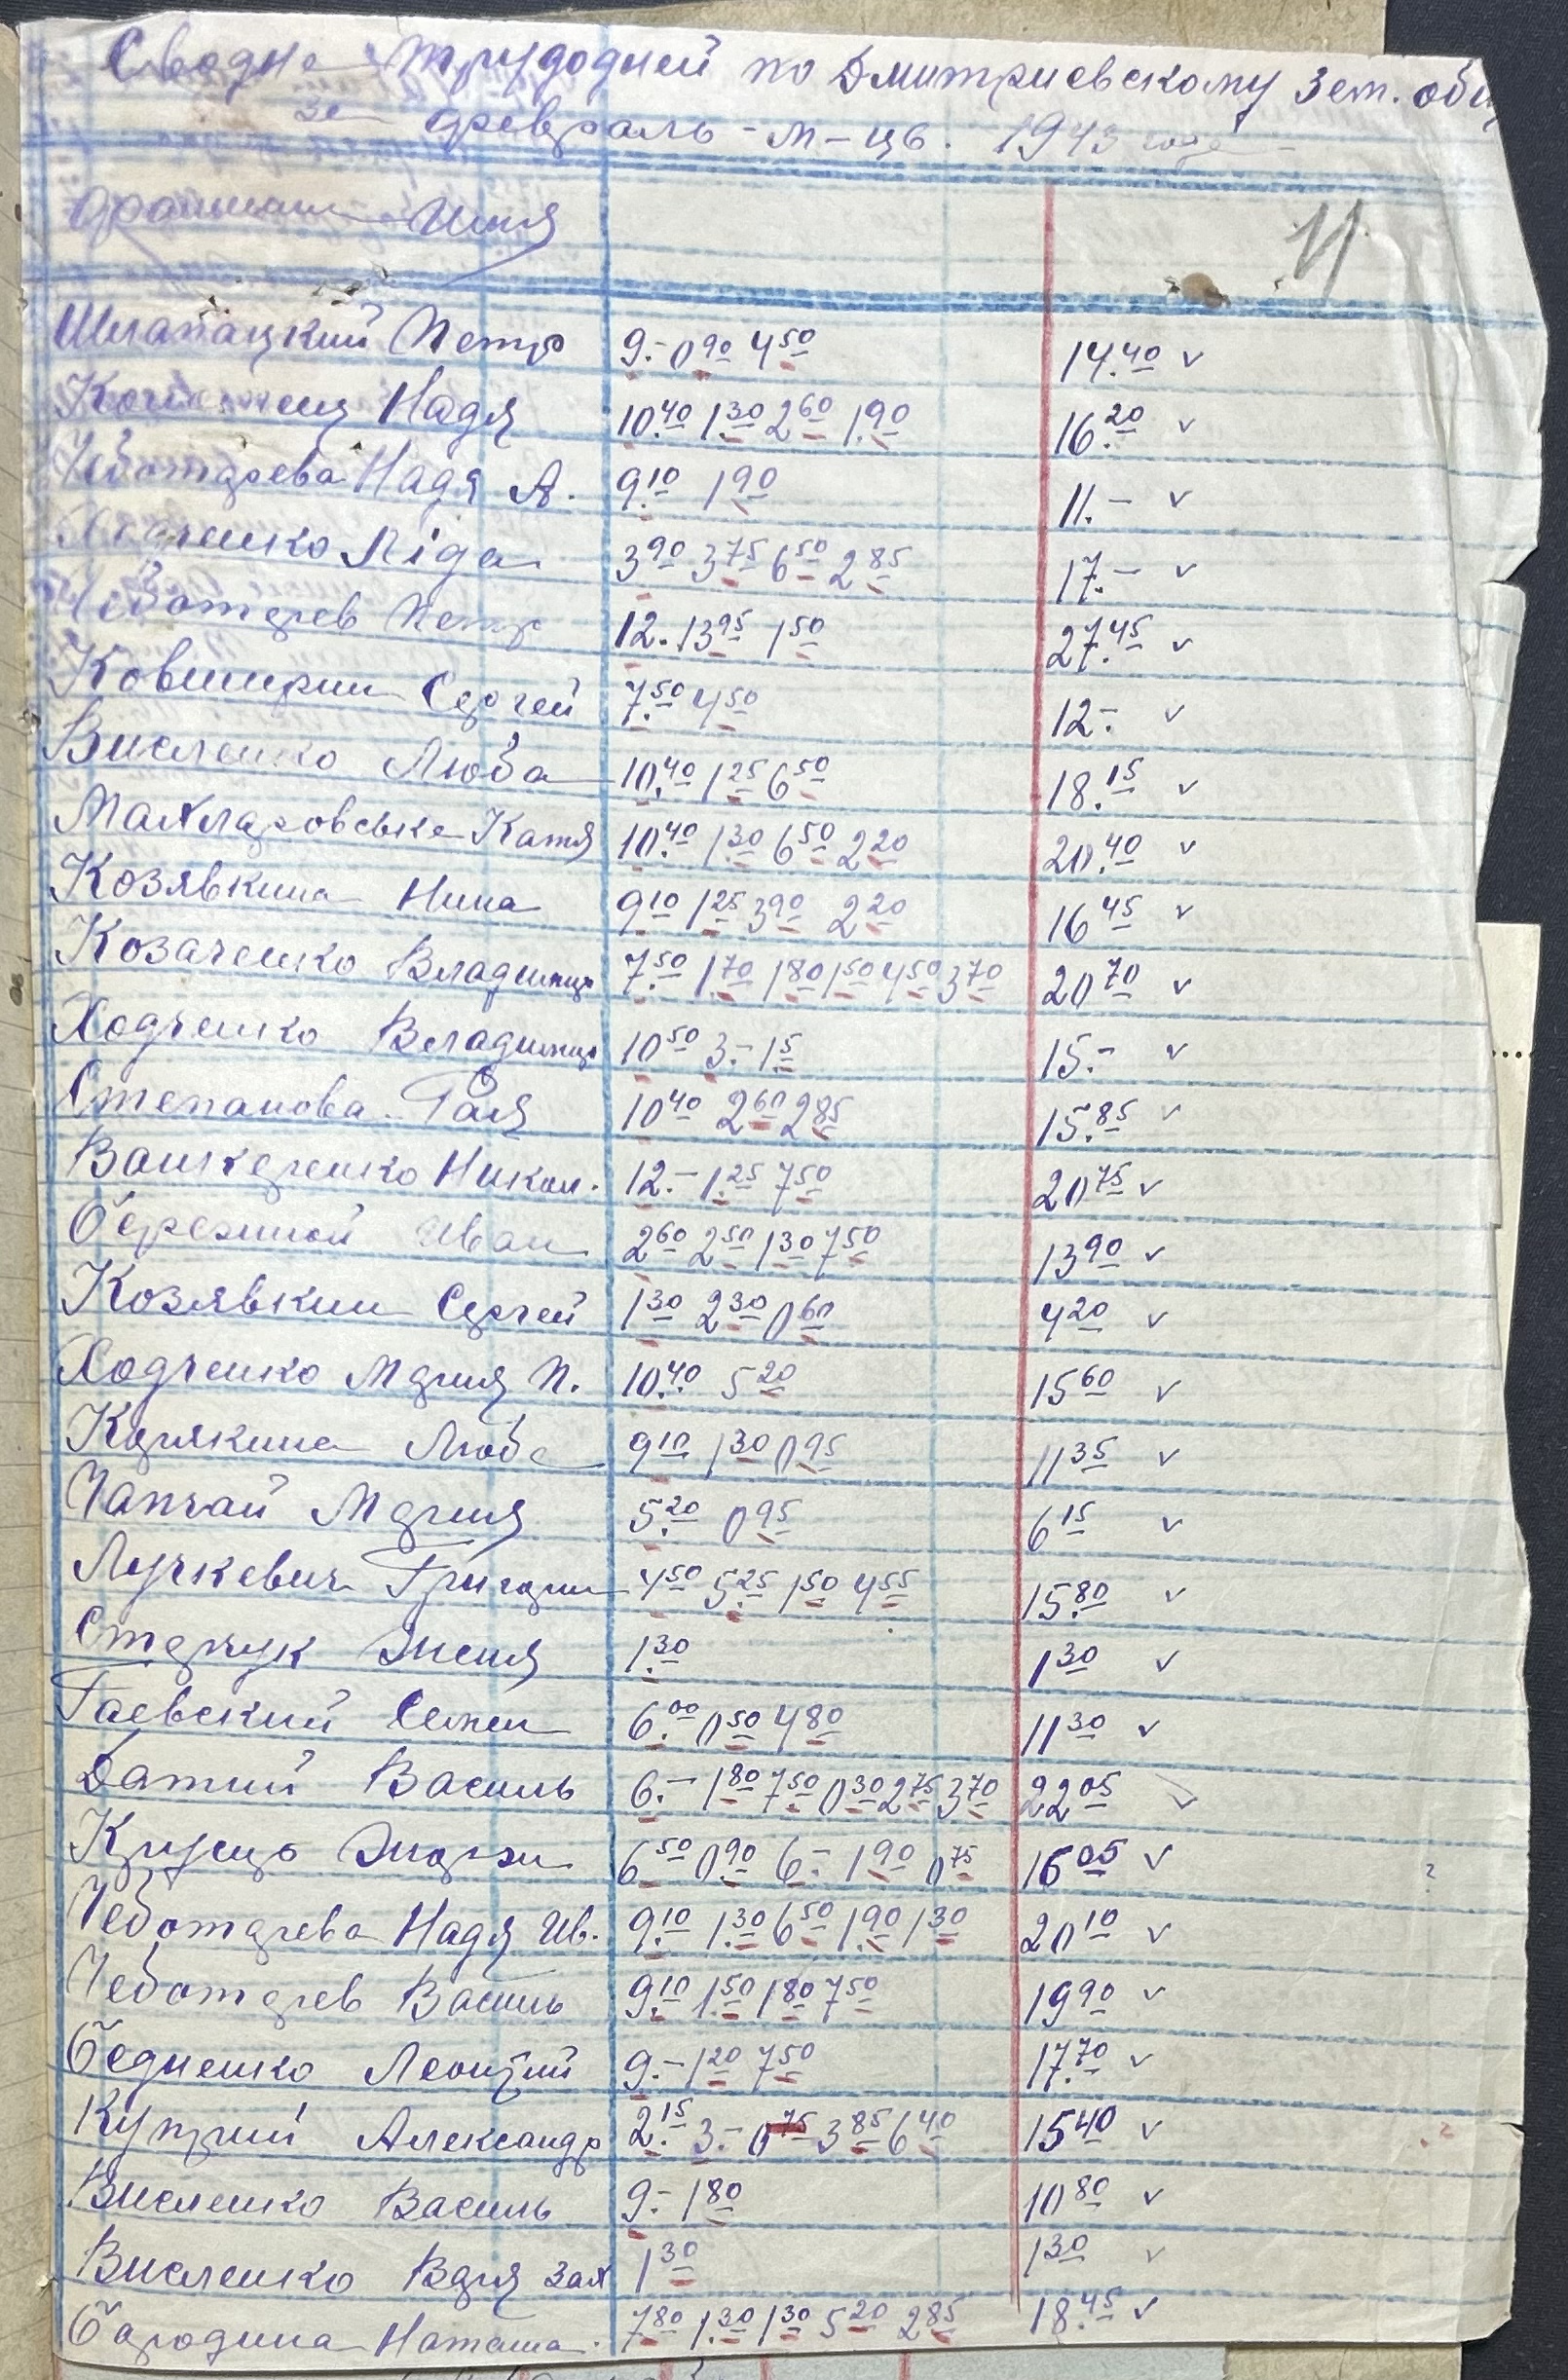 Сводка трудодней по Дмитриевскому Зем. общ
за февраль м-ць. 1943 года
Фамилия Имя
11
Шлапацкий Петр 9.- 0 90 4 50 14.40 v
Надя 10.40 1.30 2 60 1.90 16.20 v
Чеботарева Надя А. 9.10 1 90 11.- v
Ходченко Ліда 3 90 3 75 6 50 2 85 17.- v
Чеботарев Петр 12. 13 95 1 50 27.45 v
Ковширин Сергей 7.50 4 50 12.- v
Висленко Люба 10.40 1 25 6 50 18.15 v
Катя 10.40 1.30 6 50 2 20 20.40 v
Козявкина Нина 9 10 1 25 3 90 2 20 16 45 v
Козаченко Владимир 7.50 1 70 1 80 1 50 4 50 3 70 20 70 v
Ходченко Владимир 10 50 3.- 1.5 15.- v
Степанова Галя 10 40 2 60 2 85 15.85 v
Николай. 12.- 1.25 7 50 20 75 v
Бережной Иван 2 60 2 50 1 30 7 50 13 90 v
Козявкин Сергей 1 30 2 30 0 60 4 20 v
Ходченко Мария П. 10.40 5 20 15 60 v
Карякина Люба 9 10 1 30 0 95 11 35 v
Чапчай Мария 5.20 0 95 6 15 v
Лучкевич Григори 4 50 5.25 1 50 4 55 15.80 v
Старчук Женя 1.30 1 30 v
Гаевский Семен 6.00 0 50 4 80 11 30 v
Датий Василь 6.- 1 80 7 50 0 30 2 75 3 70 22 05 v
6 50 0 90 6.- 1 90 0 75 16 05 v
Чеботарева Надя Ив. 9.10 1.30 6 50 1.90 1 30 20 10 v
Чеботарев Василь 9.10 1.50 1 80 7 50 19 90 v
Бедненко Леонтий 9.- 1 20 7 50 17.70 v
Куприй Александр 2.15 3.- 0 75 3 85 6 40 15 40 v
Висленко Василь 9.- 1 80 10 80 v
Висленко Варя Зах 1 30 1 30 v
Бородина Наташа. 7 80 1.30 1 30 5 20 2 85 18.45 v